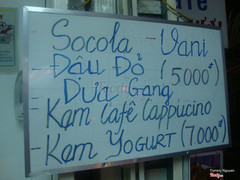 Socola - Vani
- Đậu Đỏ (5000đ)
Dưa Gang
- Kem Cafê Cappucino
- Kem YOGURT (7.000đ)